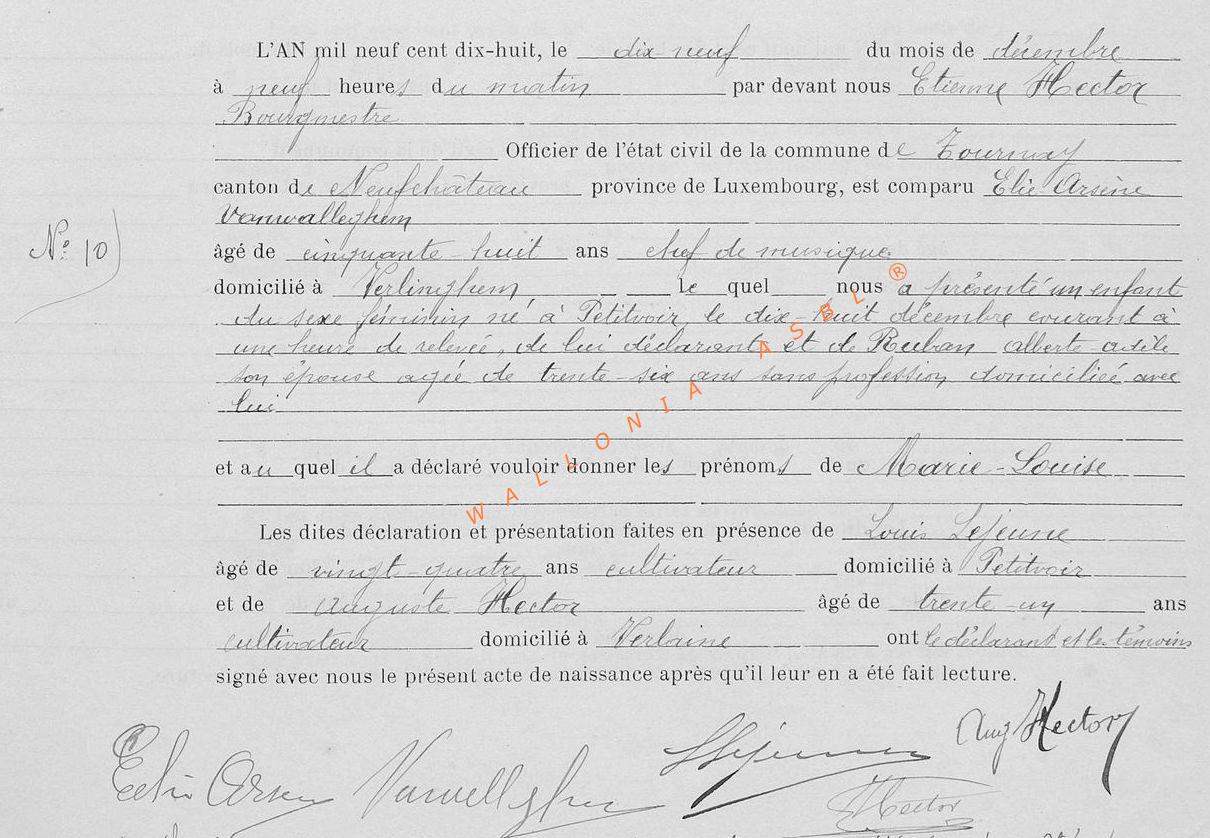 L'AN mil neuf cent dix-huit, le dix neuf du mois de décembre
à neuf heures du matin par devant nous Etienne Hector
Bourgmestre
Officier de l'état civil de la commune de Tournay
canton de Neufchâteau province de Luxembourg, est comparu Elie Arsène
Vanwalleghem
N° 10
âgé de cinquante-huit ans chef de musique
domicilié à Verlinghem, le quel nous a présenté un enfant
du sexe féminin né à Petitvoir, le dix-huit décembre courant à
une heure de relevée, de lui déclarant et de Ruhan alberte-adèle
son épouse agée de trente-six ans sans profession domiciliée avec
lui
et au quel il a déclaré vouloir donner les prénoms de Marie-Louise
Les dites déclaration et présentation faites en présence de Louis Lejeune
âgé de vingt-quatre ans cultivateur domicilié à Petitvoir
et de Auguste Hector âgé de trente-un ans
cultivateur domicilié à Verlaine ont le déclarant et les témoins
signé avec nous le présent acte de naissance après qu'il leur en a été fait lecture.
Aug Hector
LLejeune
Hector
WALLONIA ASBL ®